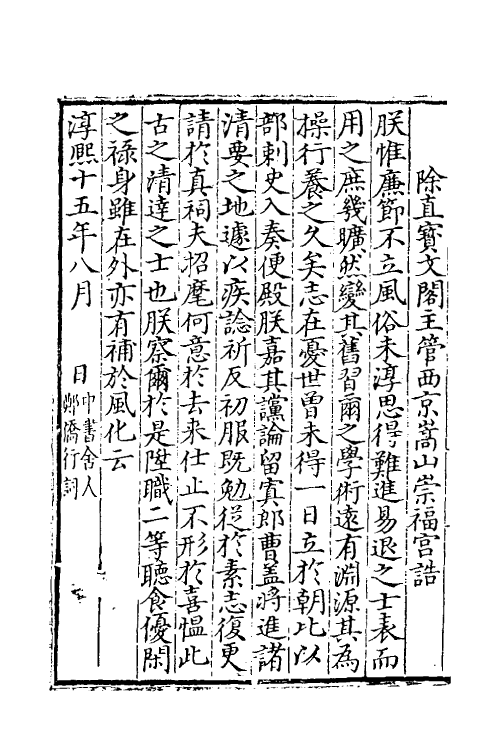 除直寳文閣主管西京嵩山崇福宫誥
朕惟廉節不立風俗未淳思得難進易退之士表而
用之庶幾曠然變其舊習爾之學術遠有淵源其為
操行養之久矣志在憂世曽未得一日立於朝比以
部刺史入奏便殿朕嘉其讜論留寘郎曹盖将進諸
清要之地遽以疾諗祈反初服既勉從於素志復更
請於真祠夫招麾何意於去来仕止不形於喜愠此
古之清達之士也朕察爾於是陞職二等聽食優閑
之禄身雖在外亦有補於風化云
淳熙十五年八月　日中書舎人
鄭僑行詞